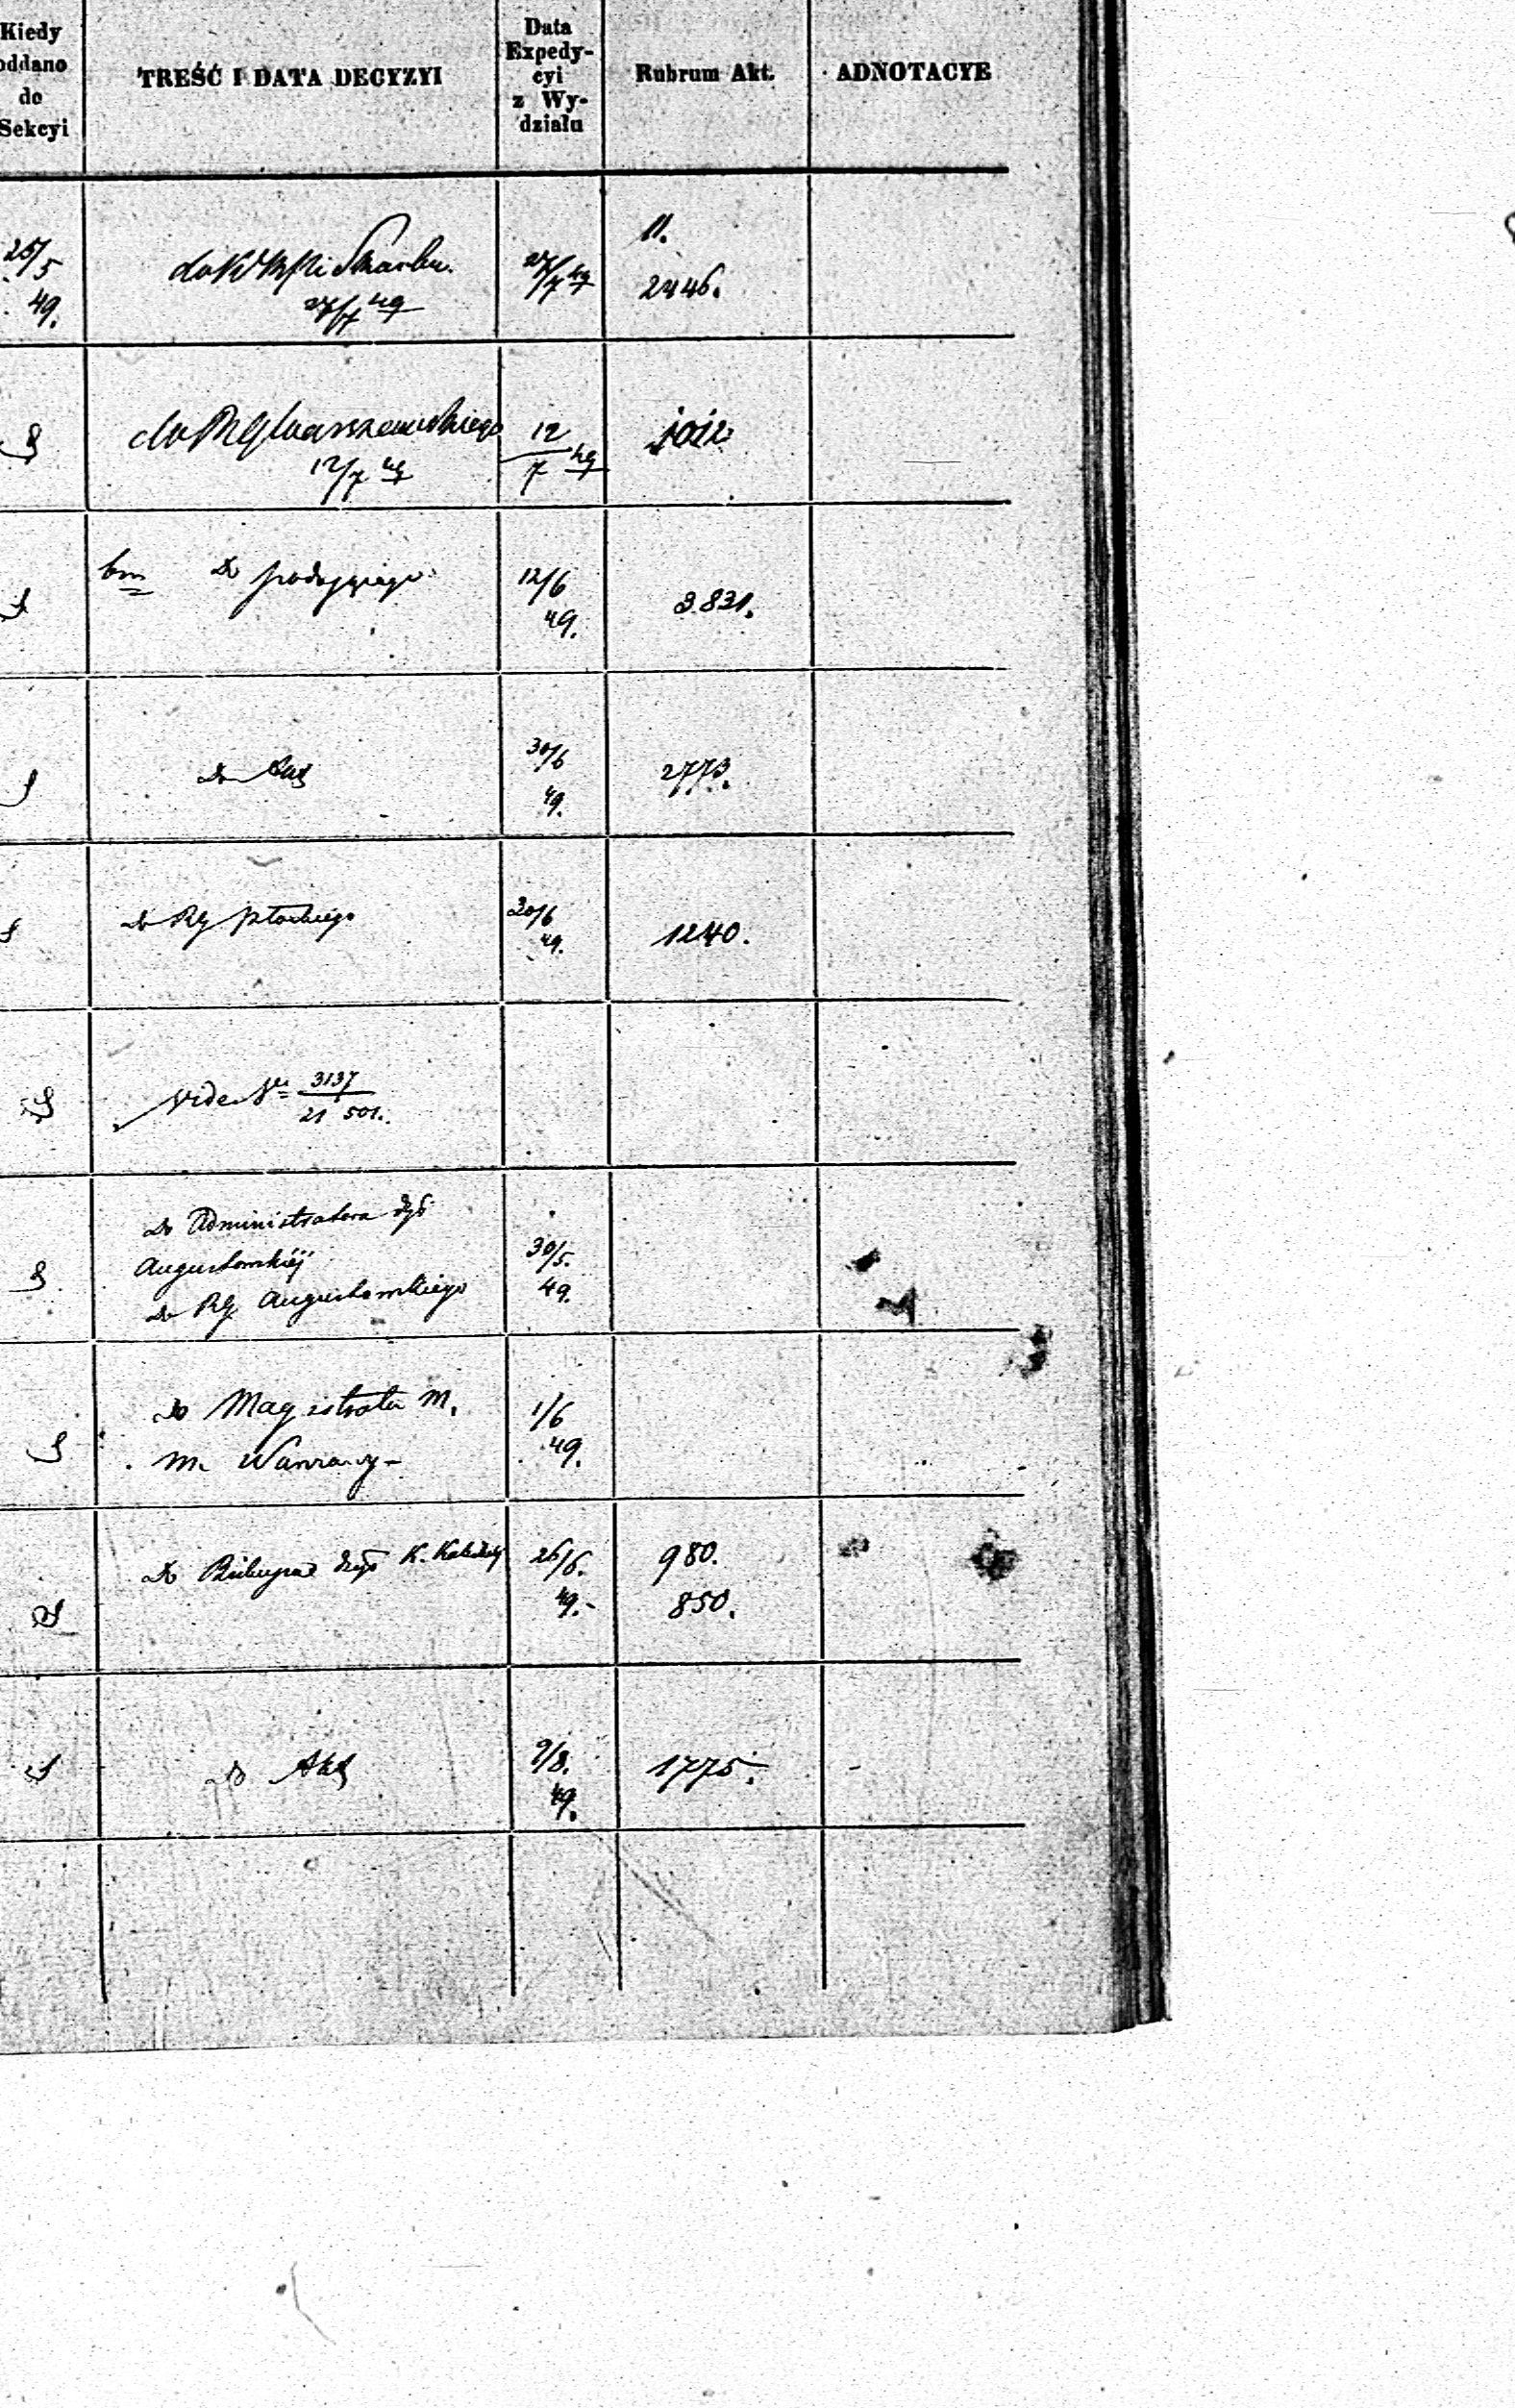 Kiedy
oddano
do
Sekcyi
TREŚĆ I DATA DECYZYI
Data
Expedy-
cyi
z Wy-
działu
Rubrum Akt.
ADNOTACYE
25/5
49.
Skarbu.
27/7 49
27/7 49
11.
2446.
do RG Warszawskiego
12/7 49
12/7 49
bm Do podającego
12/6
49.
3831.
Do Akt
30/6
49.
2773.
Do RG Płockiego
20/6
49.
1240.
Vide No 3137
21 501.
Do Administratora dyó
Augustowskiéj
Do RG Augustowskiego
30/5.
49.
Do Magistratu M.
m. Warszawy -
1/6
49.
Do Biskupa
26/6.
49.-
980.
850.
Do Akt
9/8.
49.
1775.